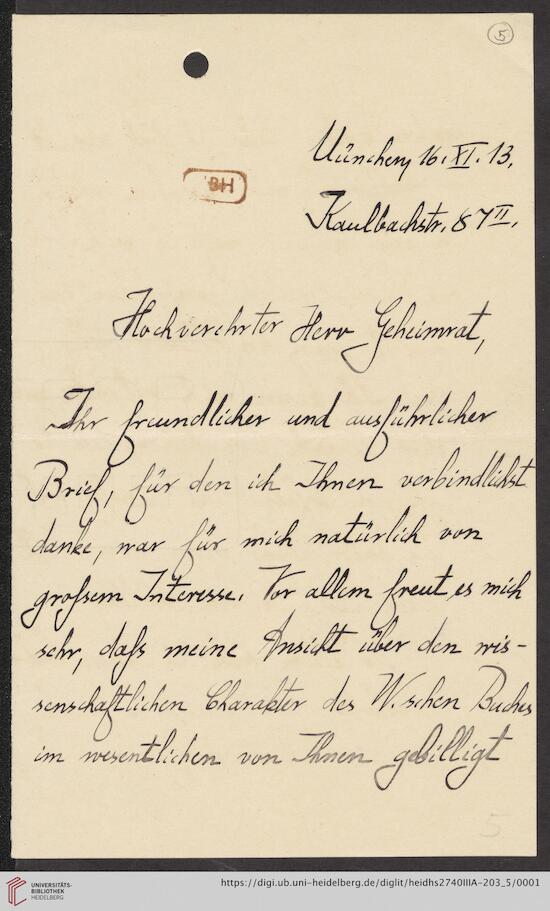 5
München, 16. XI. 13.
BH
Kaulbachstr. 87 II.
Hochverehrter Herr Geheimrat,
Ihr freundlicher und ausführlicher
Brief, für den ich Ihnen verbindlichst
danke, war für mich natürlich von
großem Interesse. Vor allem freut es mich
sehr, daß meine Ansicht über den wis-
senschaftlichen Charakter des W.schen Buches
im wesentlichen von Ihnen gebilligt
5
UNIVERSITÄTS-
BIBLIOTHEK
HEIDELBERG
https://digi.ub.uni-heidelberg.de/diglit/heidhs2740IIIA-203_5/0001